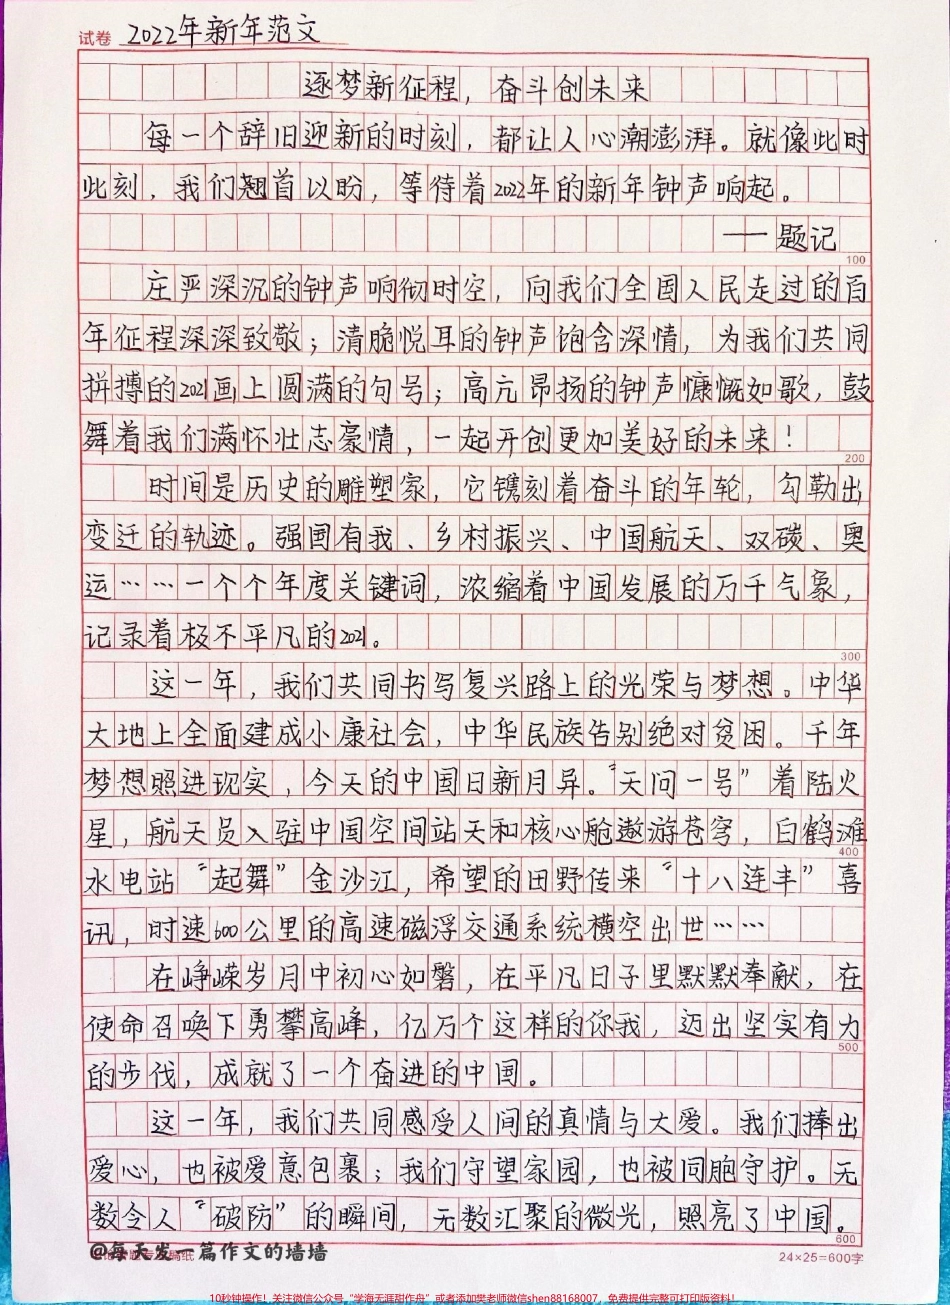 试卷 2022年新年范文
逐梦新征程，奋斗创未来
每一个辞旧迎新的时刻，都让人心潮澎湃。就像此时
此刻，我们翘首以盼，等待着2022年的新年钟声响起。
——题记
100
庄严深沉的钟声响彻时空，向我们全国人民走过的百
年征程深深致敬；清脆悦耳的钟声饱含深情，为我们共同
拼搏的2021画上圆满的句号；高亢昂扬的钟声慷慨如歌，鼓
舞着我们满怀壮志豪情，一起开创更加美好的未来！
200
时间是历史的雕塑家，它镌刻着奋斗的年轮，勾勒出
变迁的轨迹。强国有我、乡村振兴、中国航天、双碳、奥
运……一个个年度关键词，浓缩着中国发展的万千气象，
记录着极不平凡的2021。
300
这一年，我们共同书写复兴路上的光荣与梦想。中华
大地上全面建成小康社会，中华民族告别绝对贫困。千年
梦想照进现实，今天的中国日新月异。“天问一号”着陆火
星，航天员入驻中国空间站天和核心舱遨游苍穹，白鹤滩
400
水电站“起舞”金沙江，希望的田野传来“十八连丰”喜
讯，时速600公里的高速磁浮交通系统横空出世……
在峥嵘岁月中初心如磐，在平凡日子里默默奉献，在
使命召唤下勇攀高峰，亿万个这样的你我，迈出坚实有力
500
的步伐，成就了一个奋进的中国。
这一年，我们共同感受人间的真情与大爱。我们捧出
爱心，也被爱意包裹；我们守望家园，也被同胞守护。无
数令人“破防”的瞬间，无数汇聚的微光，照亮了中国。
600
@每天发一篇作文的墙墙
24×25=600字
10秒钟操作！关注微信公众号“学海无涯甜作舟”或者添加樊老师微信shen88168007，免费提供完整可打印版资料！